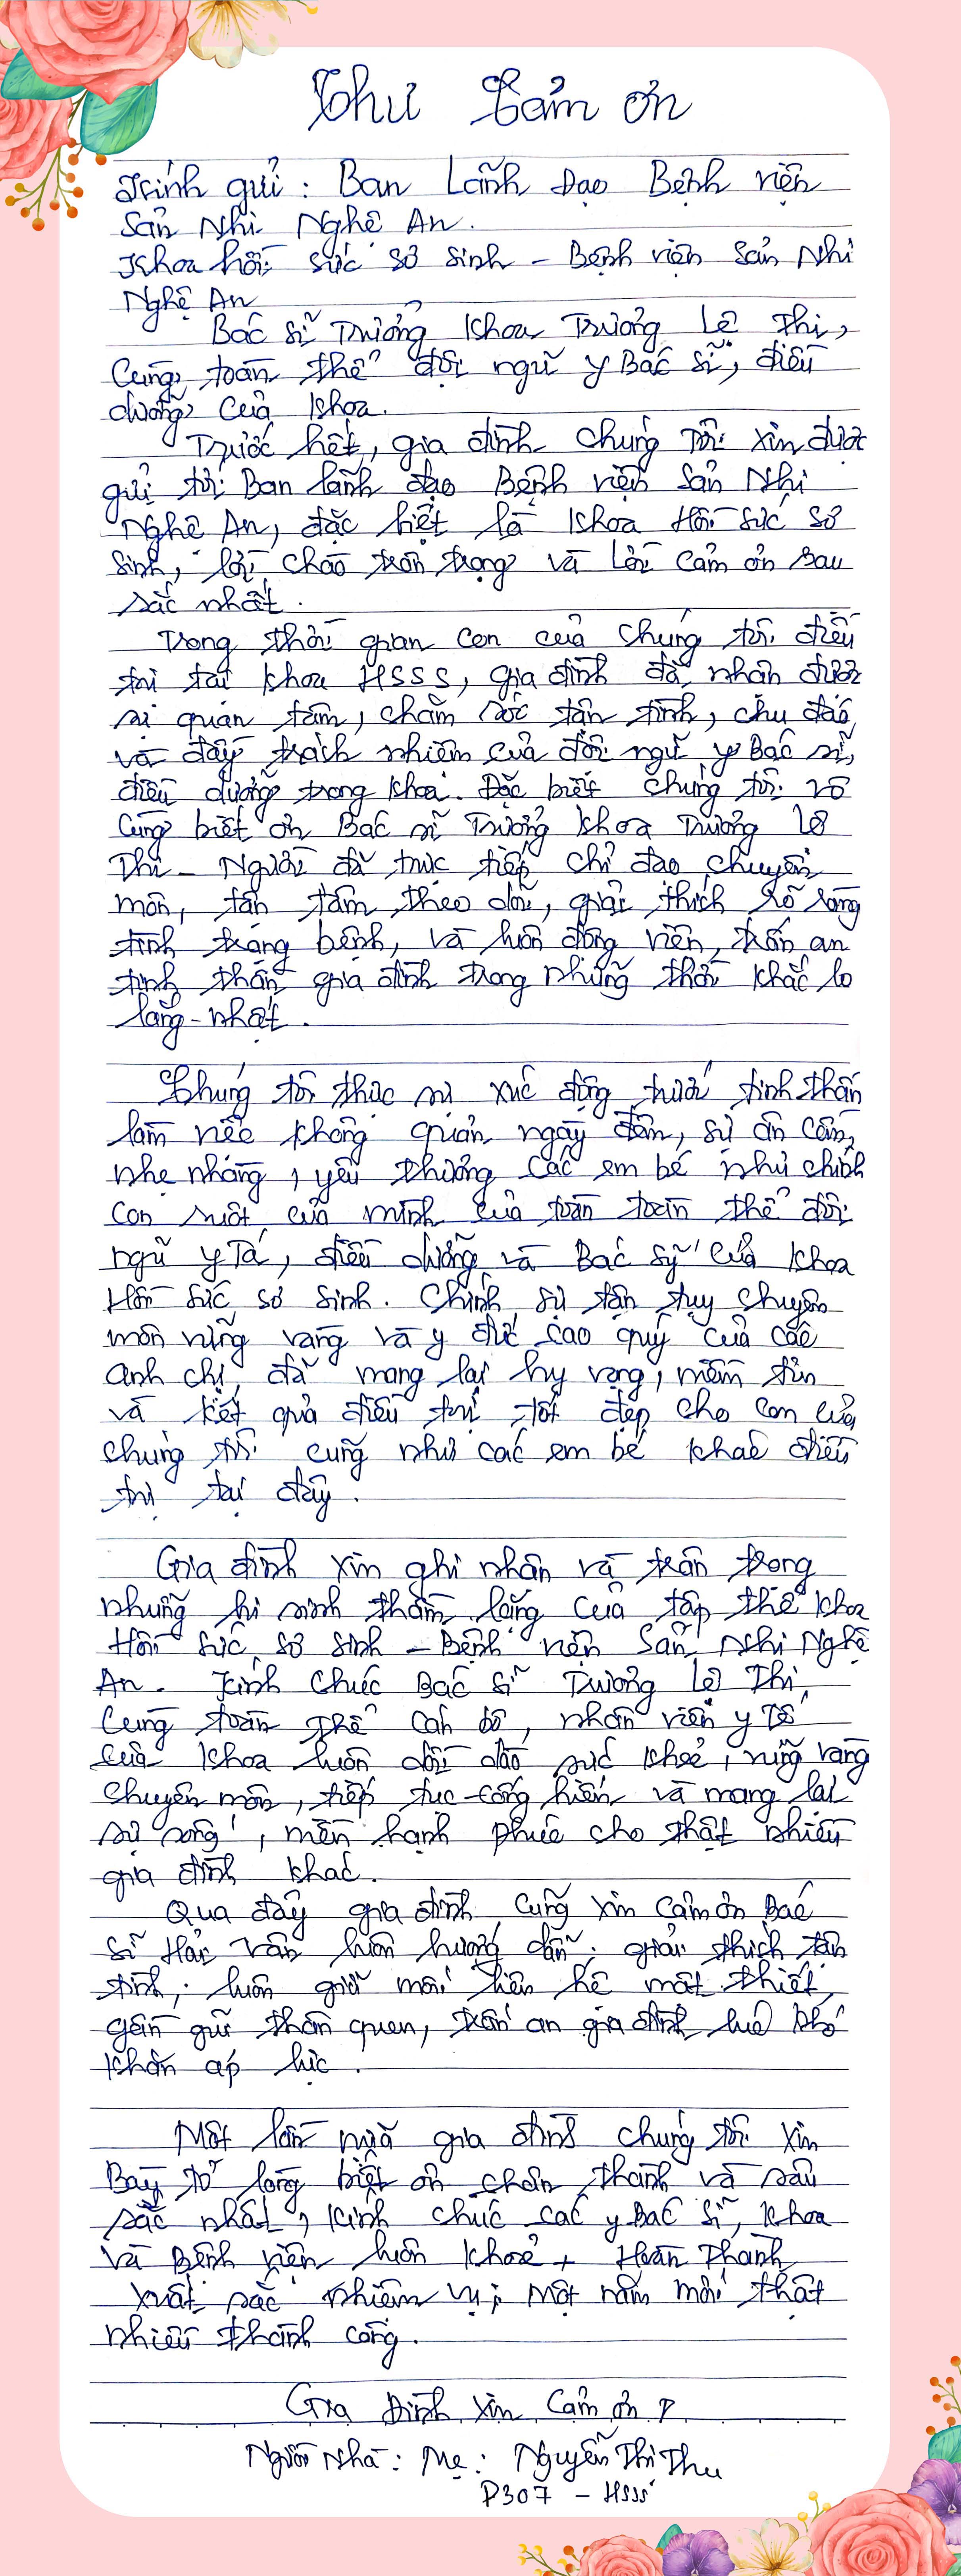 Thư Cảm ơn
Kính gửi : Ban Lãnh Đạo Bệnh viện
Sản Nhi Nghệ An.
Khoa hồi sức sơ sinh - Bệnh viện Sản Nhi
Nghệ An
Bác sĩ Trưởng Khoa Trương Lê Thi,
Cùng toàn thể đội ngũ y Bác sĩ, điều
dưỡng của Khoa.
Trước hết, gia đình chúng tôi xin được
gửi tới Ban lãnh đạo Bệnh viện Sản Nhi
Nghệ An, đặc biệt là Khoa Hồi sức sơ
sinh, lời chào trân trọng và lời cảm ơn sau
sắc nhất.
Trong thời gian con của chúng tôi điều
trị tại khoa HSSS, gia đình đã nhận được
sự quan tâm, chăm sóc tận tình, chu đáo,
và đầy trách nhiệm của đội ngũ y Bác sĩ,
điều dưỡng trong khoa. Đặc biệt chúng tôi vô
cùng biết ơn Bác sĩ Trưởng khoa Trương Lê
Thi - Người đã trực tiếp chỉ đạo chuyên
môn, tận tâm theo dõi, giải thích rõ ràng
tình trạng bệnh, và luôn động viên, trấn an
tinh thần gia đình trong những thời khắc lo
lắng - nhất.
Chúng tôi thực sự xúc động trước tinh thần
làm việc không quản ngày đêm, sự ân cần,
nhẹ nhàng, yêu thương các em bé như chính
con ruột của mình của toàn toàn thể đội
ngũ y Tá, điều dưỡng và Bác sỹ của Khoa
Hồi sức sơ sinh. Chính sự tận tụy chuyên
môn vững vàng và y đức cao quý của các
anh chị đã mang lại hy vọng, niềm tin
và kết quả điều trị tốt đẹp cho con của
chúng tôi cũng như các em bé khác điều
trị tại đây.
Gia đình xin ghi nhận và trân trọng
những hi sinh thầm lặng của tập thể khoa
Hồi sức sơ sinh - Bệnh viện Sản Nhi Nghệ
An. Kính chúc Bác sĩ Trương Lê Thi,
Cùng toàn thể cán bộ, nhân viên y tế
của khoa luôn dồi dào sức khoẻ, vững vàng
chuyên môn, tiếp tục cống hiến và mang lại
sự sống, niềm hạnh phúc cho thật nhiều
gia đình khác.
Qua đây gia đình cũng xin cảm ơn Bác
sĩ Hải Vân luôn hướng dẫn, giải thích tận
tình, luôn giữ mối liên hệ mật thiết,
gần gũi thân quen, trấn an gia đình lúc khó
khăn áp lực.
Một lần nữa gia đình chúng tôi xin
Bày tỏ lòng biết ơn chân thành và sâu
sắc nhất, Kính chúc các y Bác sĩ, Khoa
và Bệnh viện luôn khoẻ + Hoàn Thành
xuất sắc nhiệm vụ; Một năm mới thật
nhiều thành công.
Gia Đình xin Cảm ơn
Người Nhà : Mẹ : Nguyễn Thị Thu
P307 - HSSS